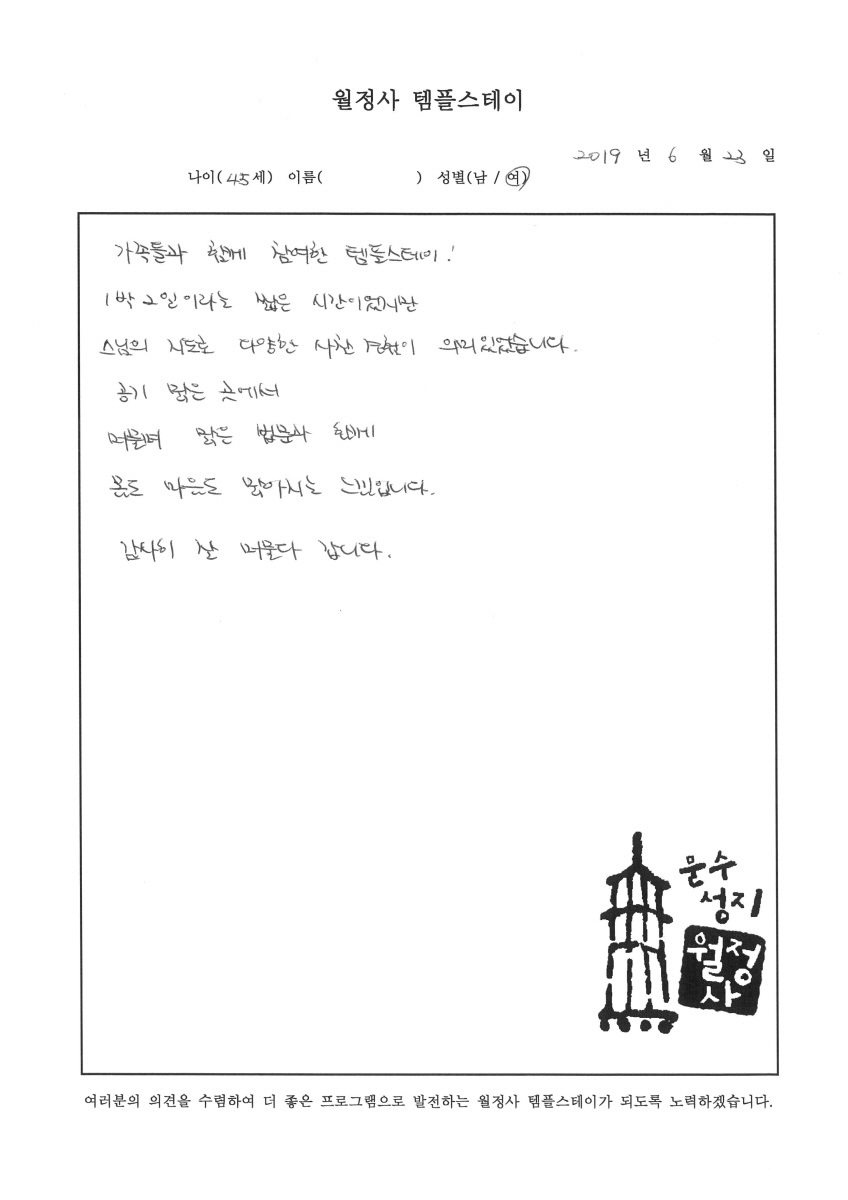 월정사 템플스테이
2019 년 6 월 23 일
나이( 45 세) 이름( ) 성별(남 / 여)
가족들과 함께 참여한 템플스테이!
1박 2일이라는 짧은 시간이었지만
스님의 지도로 다양한 사찰 경험이 의미있었습니다.
공기 맑은 곳에서
머물며 맑은 법문과 함께
몸도 마음도 맑아지는 느낌입니다.
감사히 잘 머물다 갑니다.
문수
성지
월정
사
여러분의 의견을 수렴하여 더 좋은 프로그램으로 발전하는 월정사 템플스테이가 되도록 노력하겠습니다.